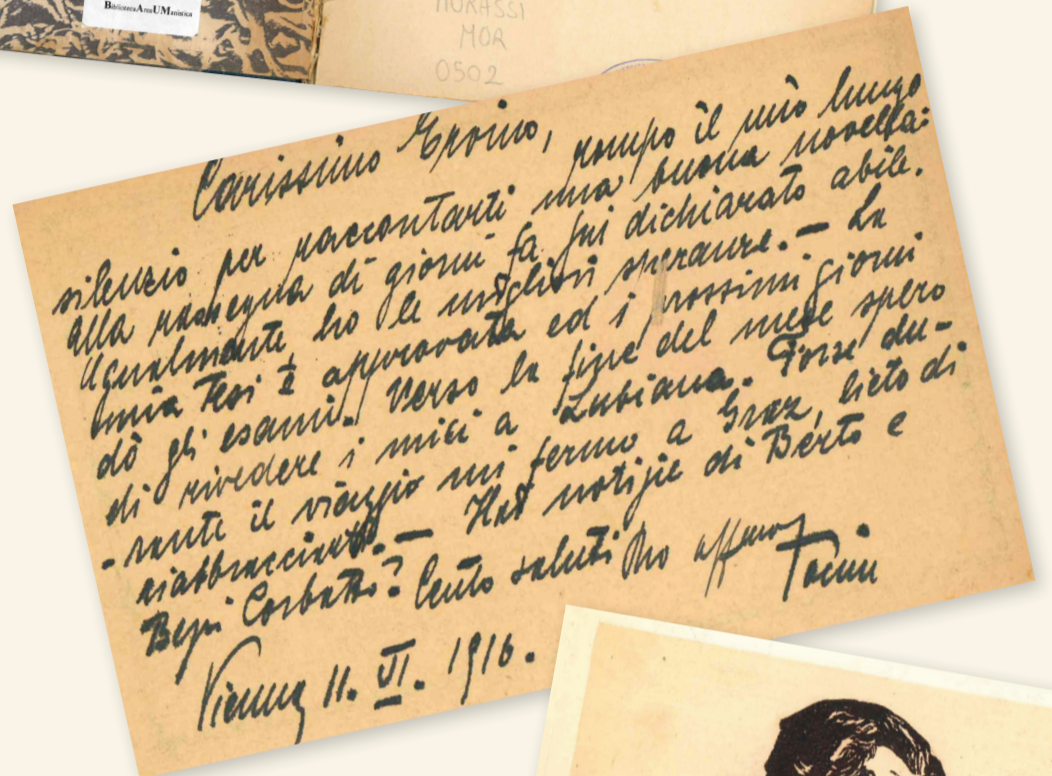 BibliotecaAreaUManistica
MORASSI
MOR
0502
Carissimo Eroino, rompo il mio lungo
silenzio per raccontarti una buona novella:
alla rassegna di giorni fa fui dichiarato abile.
Ugualmente ho le migliori speranze. — La
mia Tesi è approvata ed i prossimi giorni
dò gli esami. Verso la fine del mese spero
di rivedere i miei a Lubiana. Forse du-
-rante il viaggio mi fermo a Graz, lieto di
riabbracciarti. — Hai notizie di Berto e
Bepi Corbatto? Cento saluti tuo affmo
Toni
Vienna 11. VI. 1916.